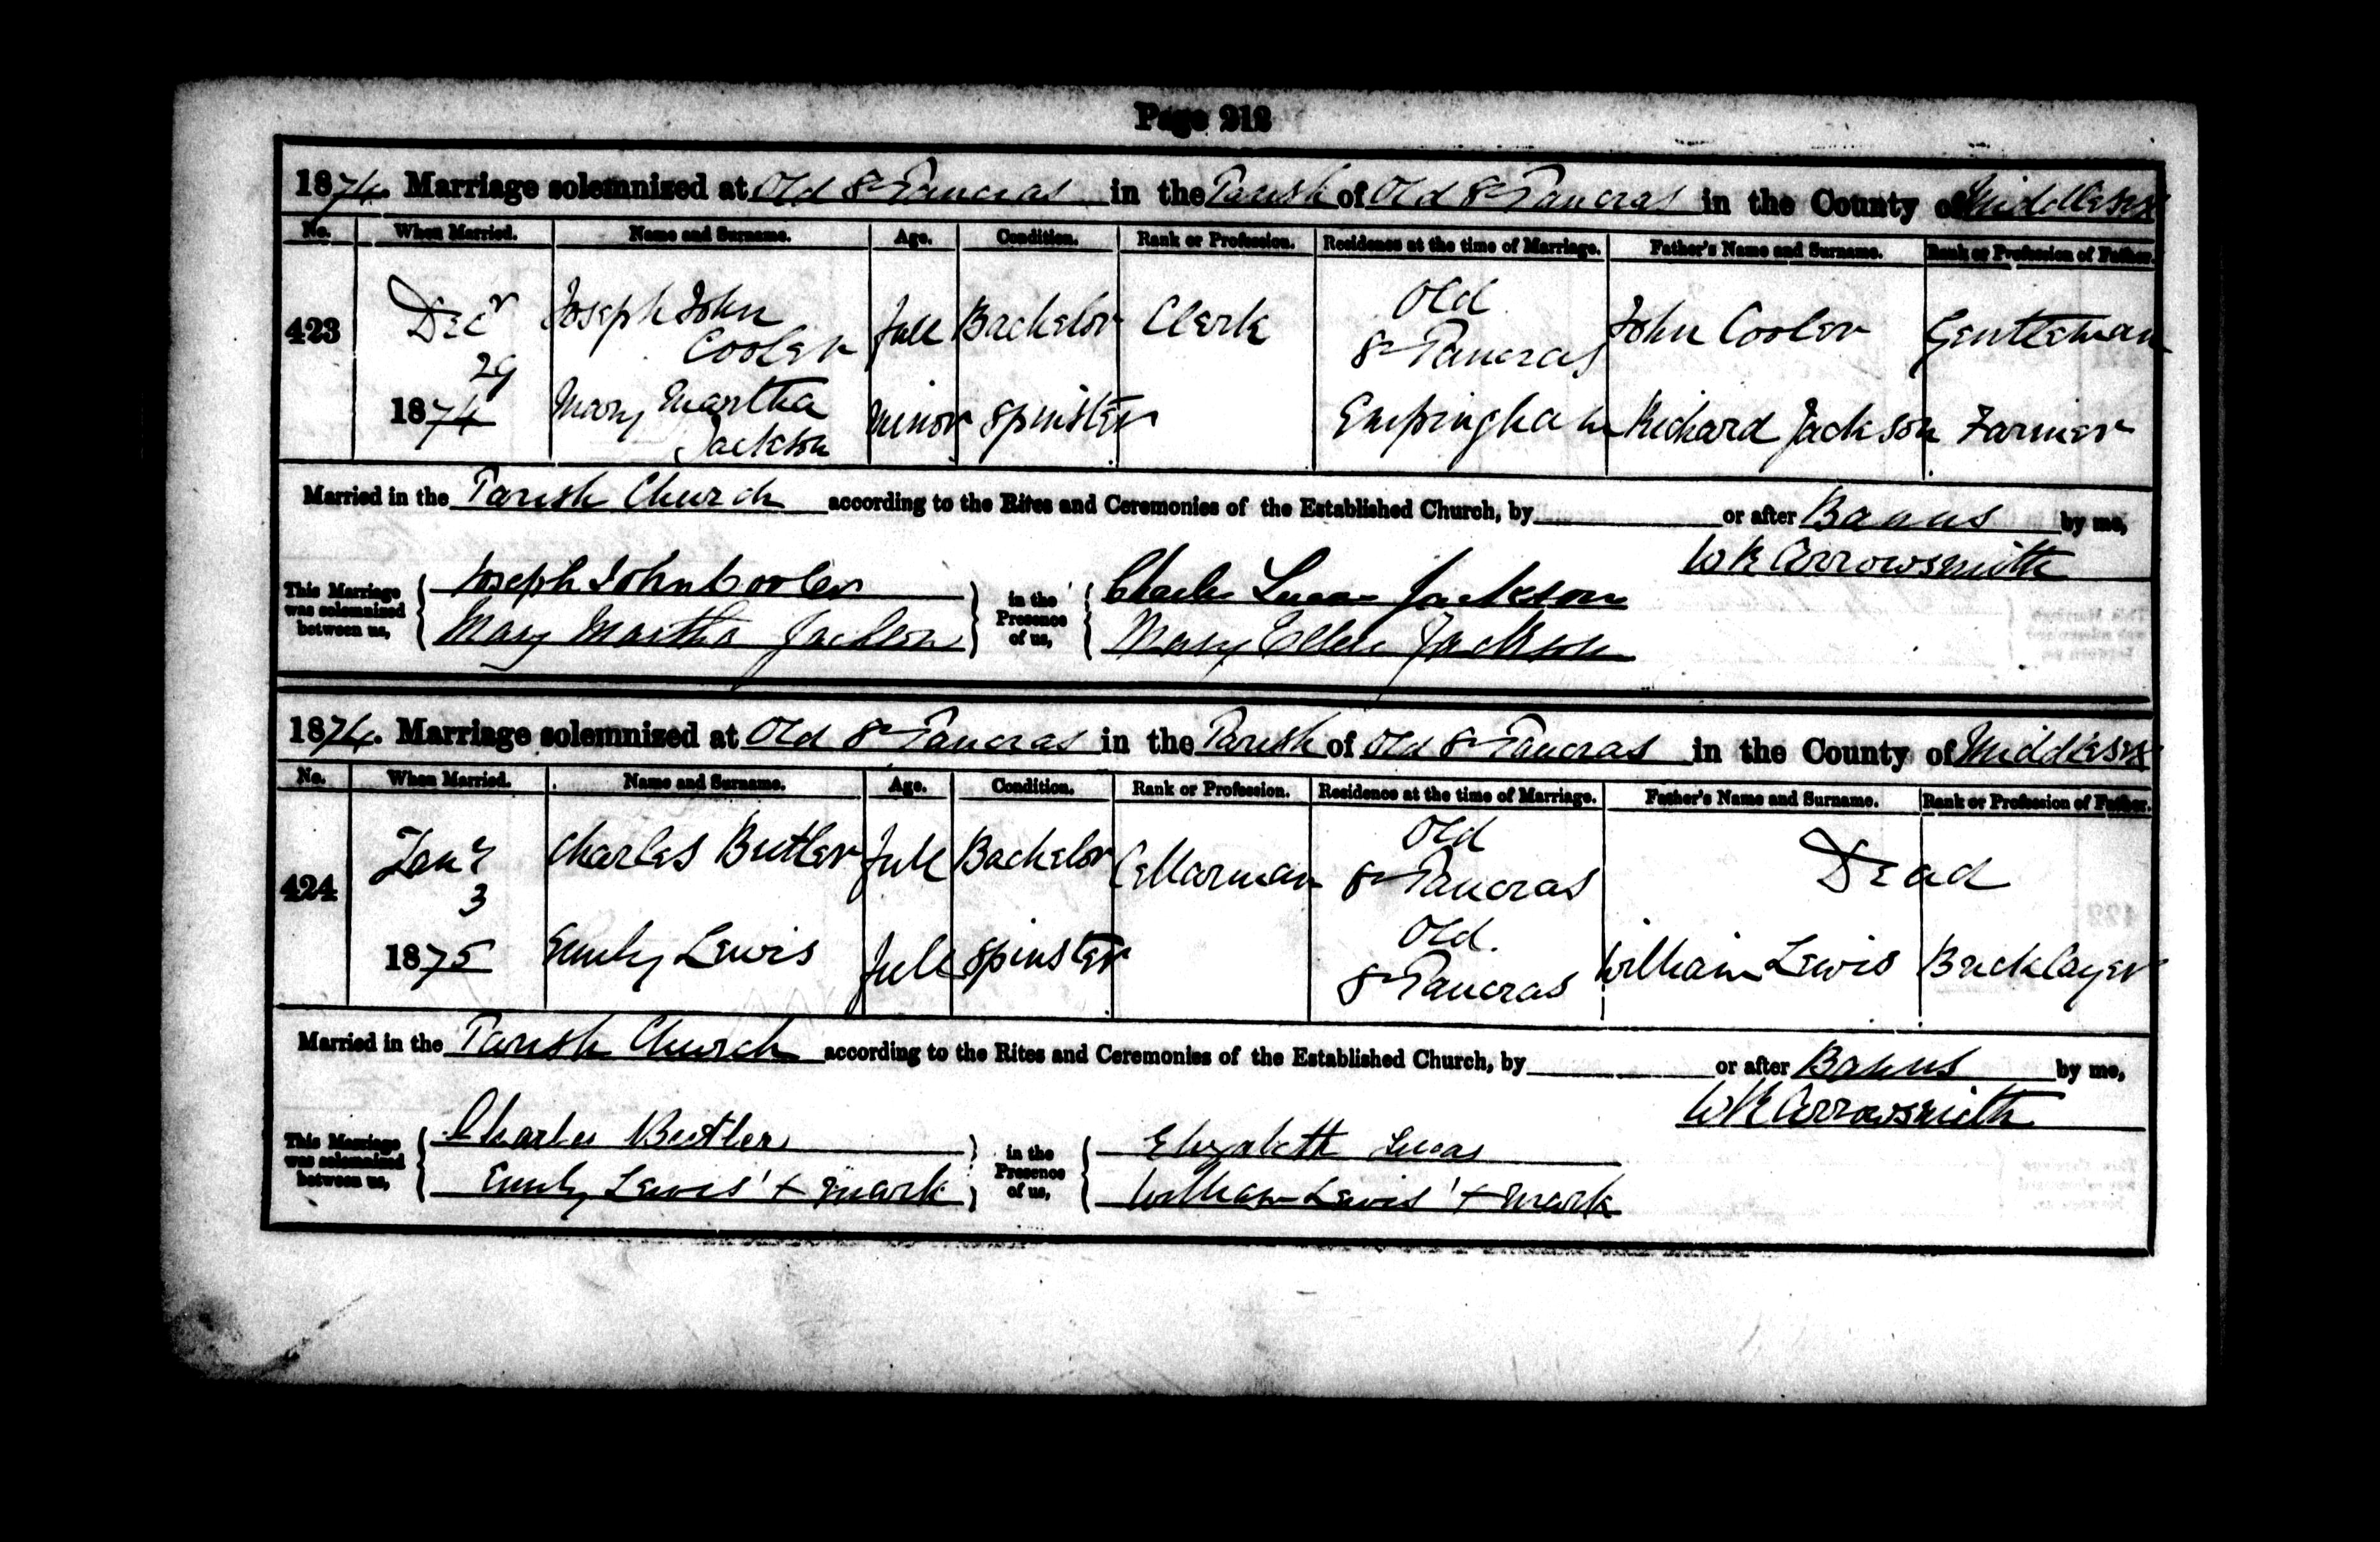 Page 212
1874. Marriage solemnized at Old St Pancras in the Parish of Old St Pancras in the County of Middlesex
No. When Married. Name and Surname. Age. Condition. Rank or Profession. Residence at the time of Marriage. Father's Name and Surname. Rank or Profession of Father.
423 Decr 29 1874 Joseph John Cooler full Bachelor Clerk Old St Pancras John Cooler Gentleman
Mary Martha Jackson minor Spinster Empingham Richard Jackson Farmer
Married in the Parish Church according to the Rites and Ceremonies of the Established Church, by or after Banns by me,
W R Arrowsmith
This Marriage was solemnized between us, Joseph John Cooler in the Presence of us, Charles Lucas Jackson
Mary Martha Jackson Mary Ellen Jackson
1874. Marriage solemnized at Old St Pancras in the Parish of Old St Pancras in the County of Middlesex
No. When Married. Name and Surname. Age. Condition. Rank or Profession. Residence at the time of Marriage. Father's Name and Surname. Rank or Profession of Father.
424 Jany 3 1875 Charles Butler full Bachelor Cellarman Old St Pancras Dead
Emily Lewis full Spinster Old St Pancras William Lewis Bricklayer
Married in the Parish Church according to the Rites and Ceremonies of the Established Church, by or after Banns by me,
W R Arrowsmith
This Marriage was solemnized between us, Charles Butler in the Presence of us, Elizabeth Lucas
Emily Lewis' + mark William Lewis' + mark